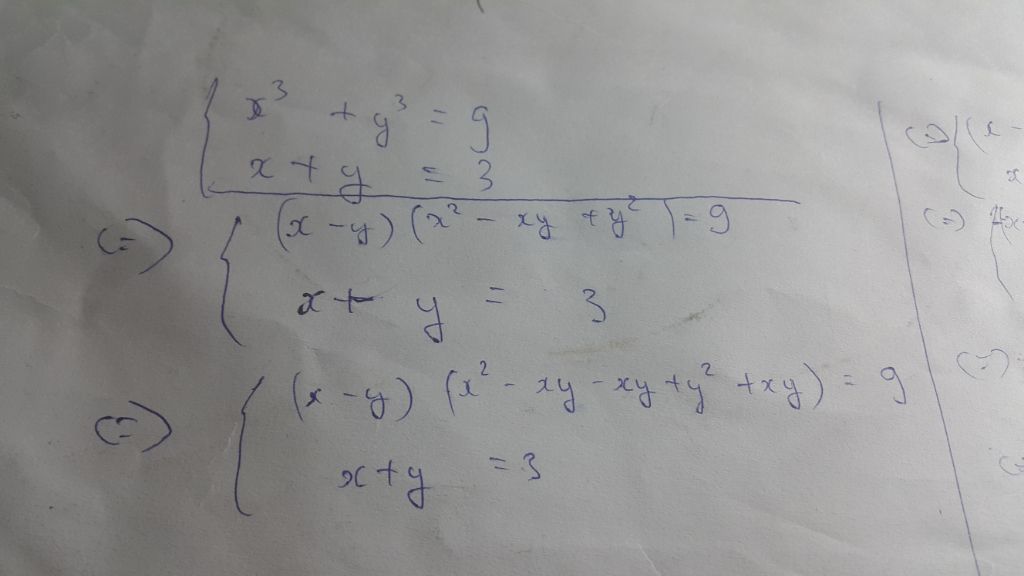 x³ + y³ = 9
x + y = 3
(=) (x - y) (x² - xy + y²) = 9
x + y = 3
(=) (x - y) (x² - xy - xy + y² + xy) = 9
x + y = 3
(=) (x -
x
(=)
(=)